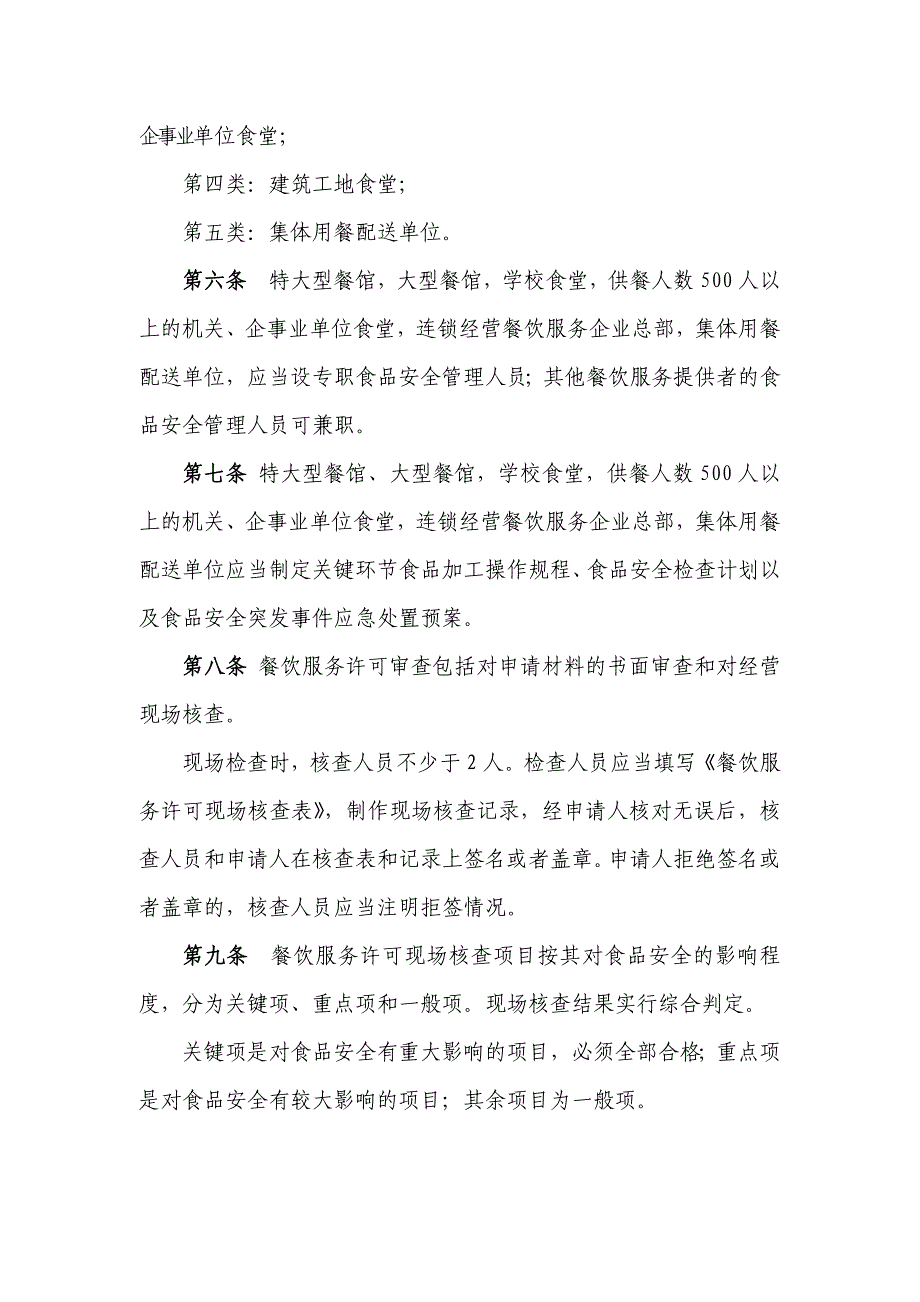 企事业单位食堂；
第四类：建筑工地食堂；
第五类：集体用餐配送单位。
第六条　特大型餐馆，大型餐馆，学校食堂，供餐人数 500 人以
上的机关、企事业单位食堂，连锁经营餐饮服务企业总部，集体用餐
配送单位，应当设专职食品安全管理人员；其他餐饮服务提供者的食
品安全管理人员可兼职。
第七条 特大型餐馆、大型餐馆，学校食堂，供餐人数 500 人以
上的机关、企事业单位食堂，连锁经营餐饮服务企业总部，集体用餐
配送单位应当制定关键环节食品加工操作规程、食品安全检查计划以
及食品安全突发事件应急处置预案。
第八条 餐饮服务许可审查包括对申请材料的书面审查和对经营
现场核查。
现场检查时，核查人员不少于 2 人。检查人员应当填写《餐饮服
务许可现场核查表》，制作现场核查记录，经申请人核对无误后，核
查人员和申请人在核查表和记录上签名或者盖章。申请人拒绝签名或
者盖章的，核查人员应当注明拒签情况。
第九条　餐饮服务许可现场核查项目按其对食品安全的影响程
度，分为关键项、重点项和一般项。现场核查结果实行综合判定。
关键项是对食品安全有重大影响的项目，必须全部合格；重点项
是对食品安全有较大影响的项目；其余项目为一般项。